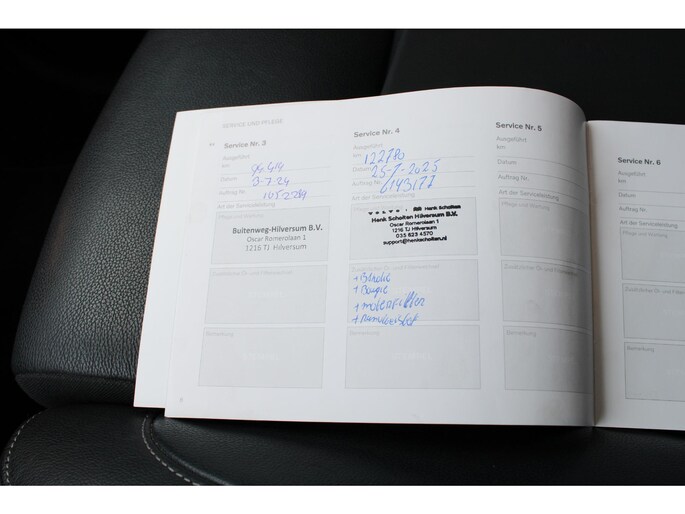 SERVICE UND PFLEGE
Service Nr. 3
Ausgeführt
km
Datum 3-7-24
Auftrag Nr.
Art der Serviceleistung
Pflege und Wartung
Buitenweg-Hilversum B.V.
Oscar Romerolaan 1
1216 TJ Hilversum
Bemerkung
Service Nr. 4
Ausgeführt
km 122780
Datum 25-7-2025
Auftrag Nr. 6143177
Art der Serviceleistung
Henk Scholten
Henk Scholten Hilversum B.V.
Oscar Romerolaan 1
1216 TJ Hilversum
035 623 4570
support@henkscholten.nl
+ Bougie
Bemerkung
Service Nr. 5
Ausgeführt
km
Datum
Auftrag Nr.
Art der Serviceleistung
Pflege und Wartung
Bemerkung
Service Nr. 6
Ausgeführt
km
Datum
Auftrag Nr.
Art der Serviceleistung
Pflege und Wartung
Bemerkung